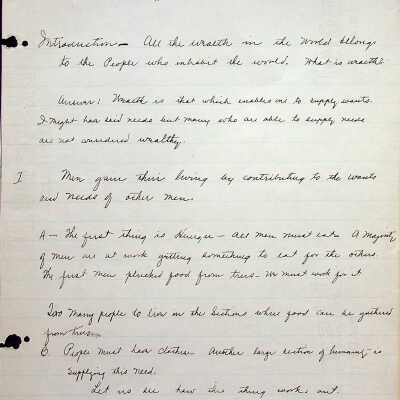 Introduction — All the wealth in the World belongs
to the People who inhabit the world. What is wealth?
Answer: Wealth is that which enables one to supply wants.
I might have said needs but many who are able to supply needs
are not considered wealthy.
I Men gain their living by contributing to the wants
and needs of other men.
A — The first thing is Hunger — All men must eat. A majority
of men are at work getting something to eat for the others.
The first men plucked food from trees — We must work for it
Too many people to live on the sections where food can be gathered
from trees.
People must have clothes. Another large section of humanity is
supplying this need.
Let us see how this thing works out.